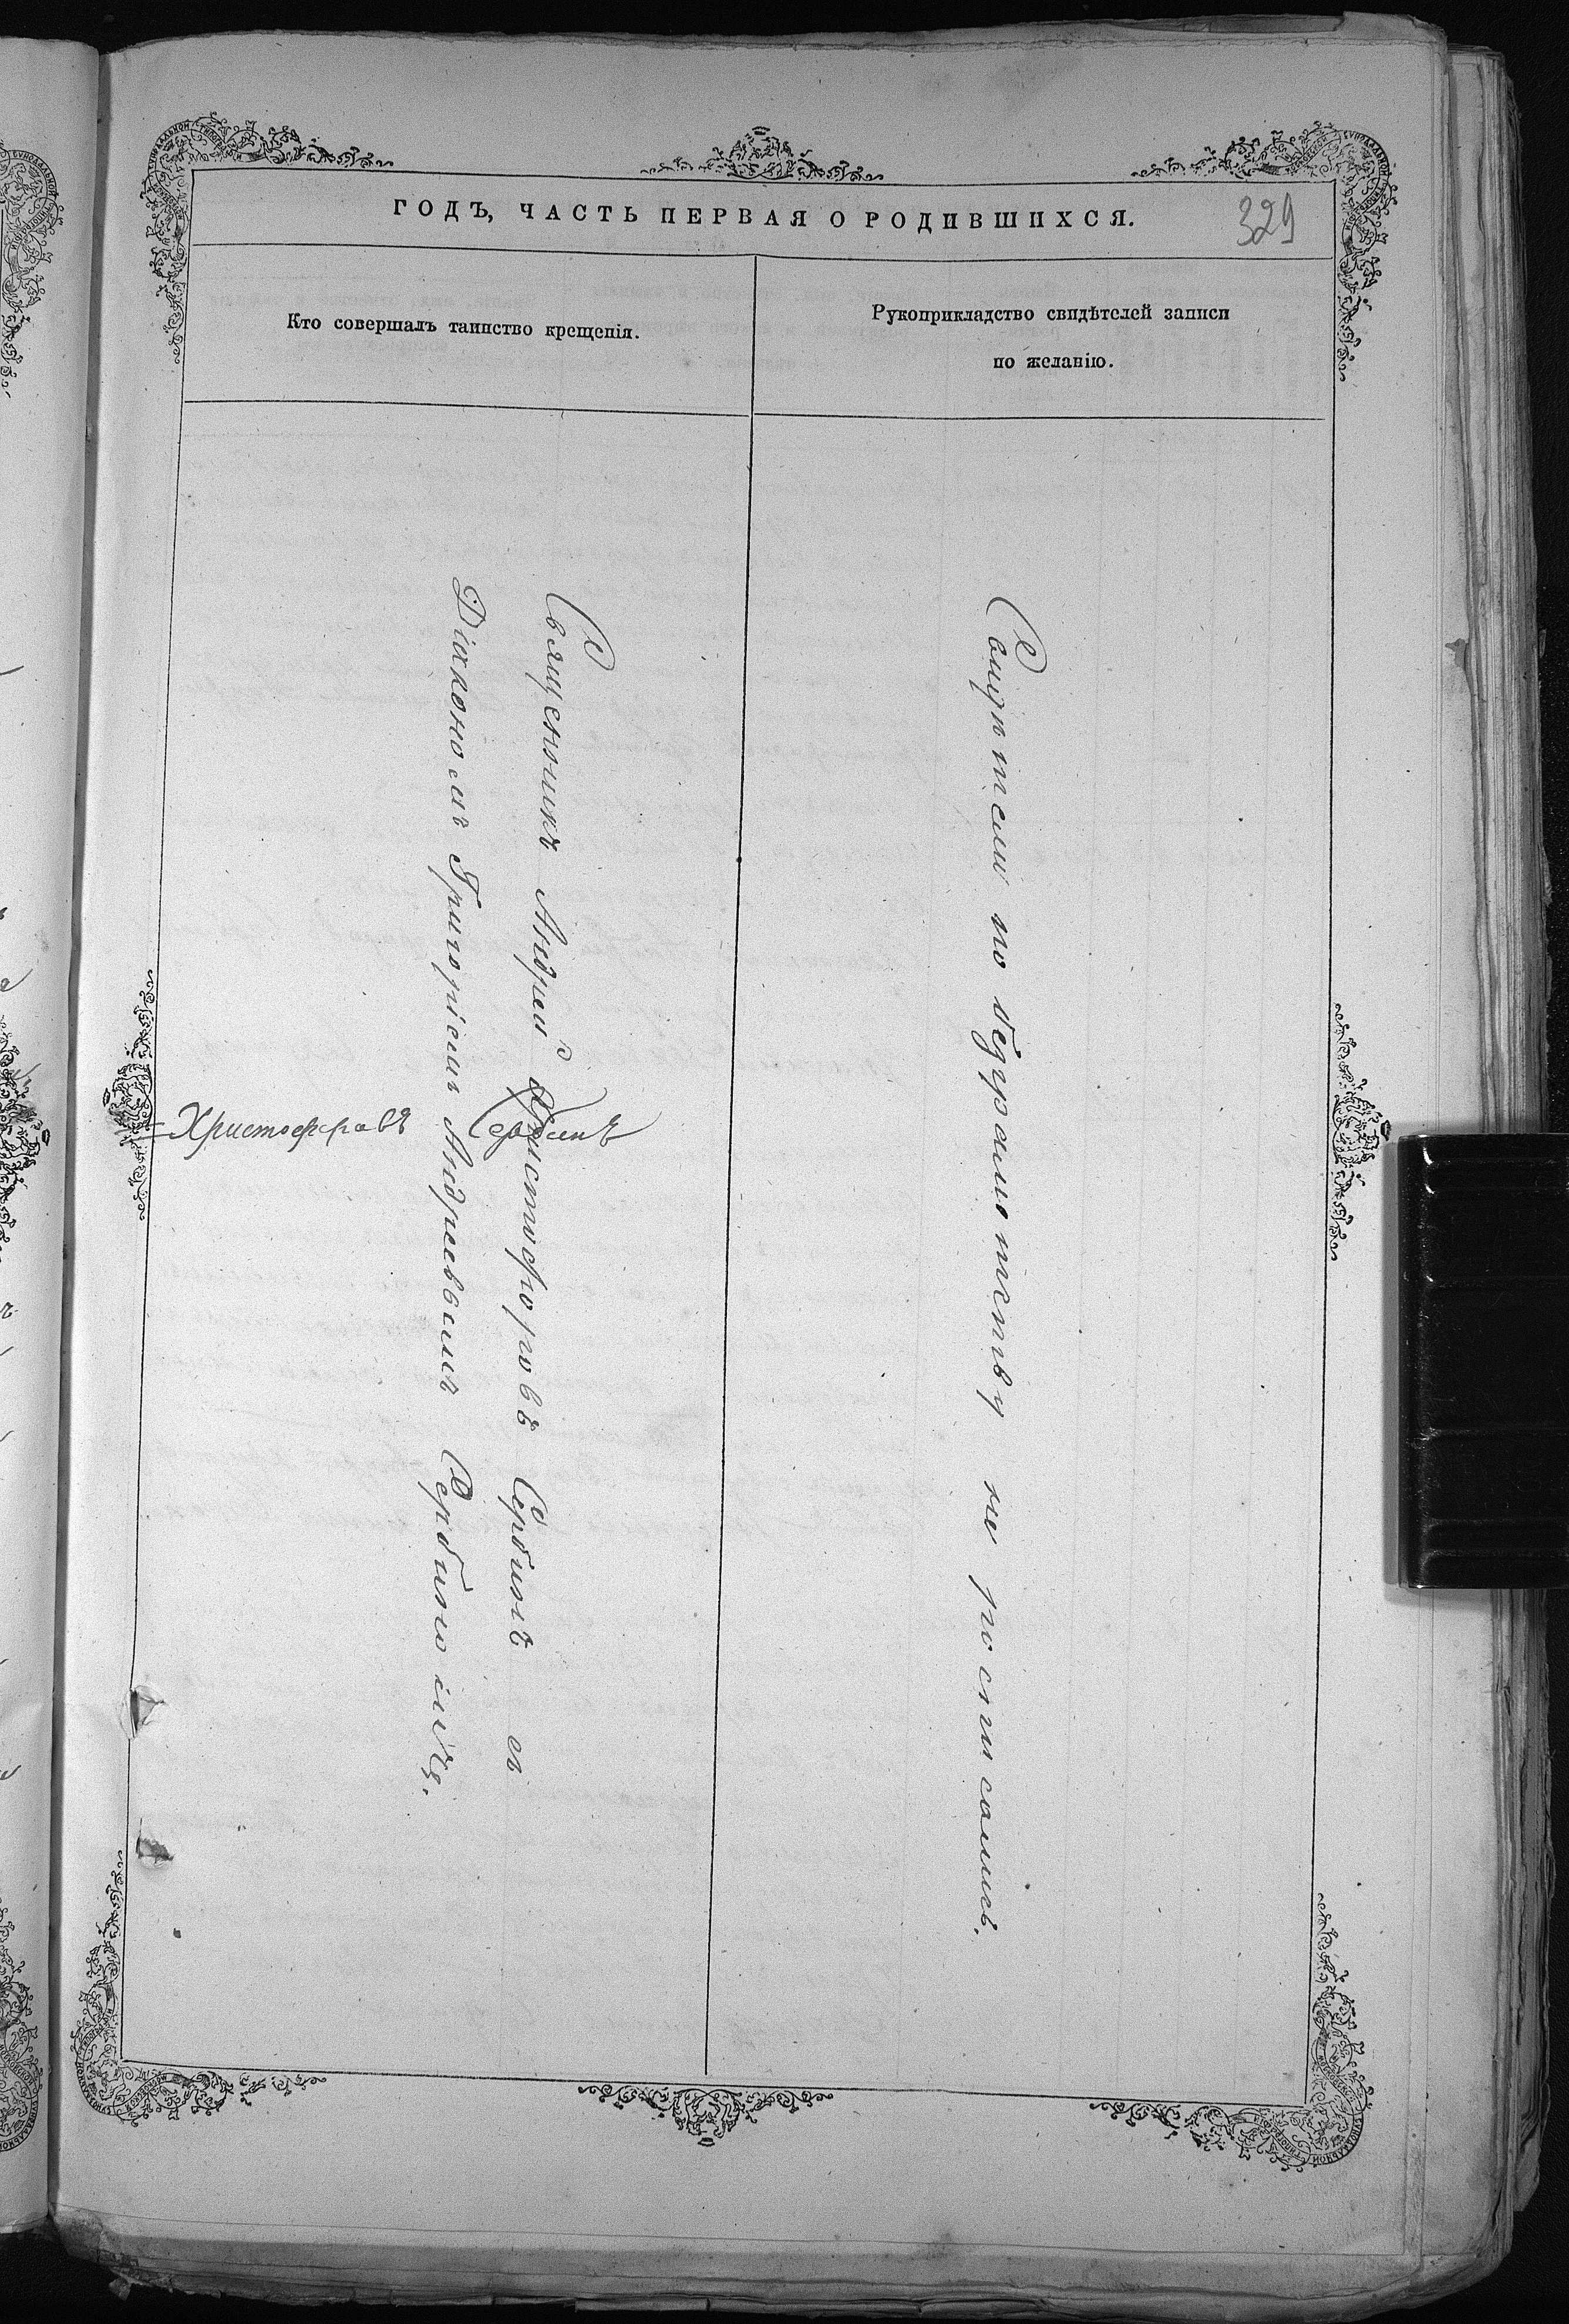 ГОДЪ, ЧАСТЬ ПЕРВАЯ О РОДИВШИХСЯ.
329
Кто совершалъ таинство крещенія.
Рукоприкладство свидѣтелей записи
по желанію.
Священникъ Андрей Христофоровъ Сербинъ съ
Діакономъ Григоріемъ Андреевымъ Сербиномъ.
Христофоровъ Сербинъ
Свидѣтели по безграмотству не росписались.